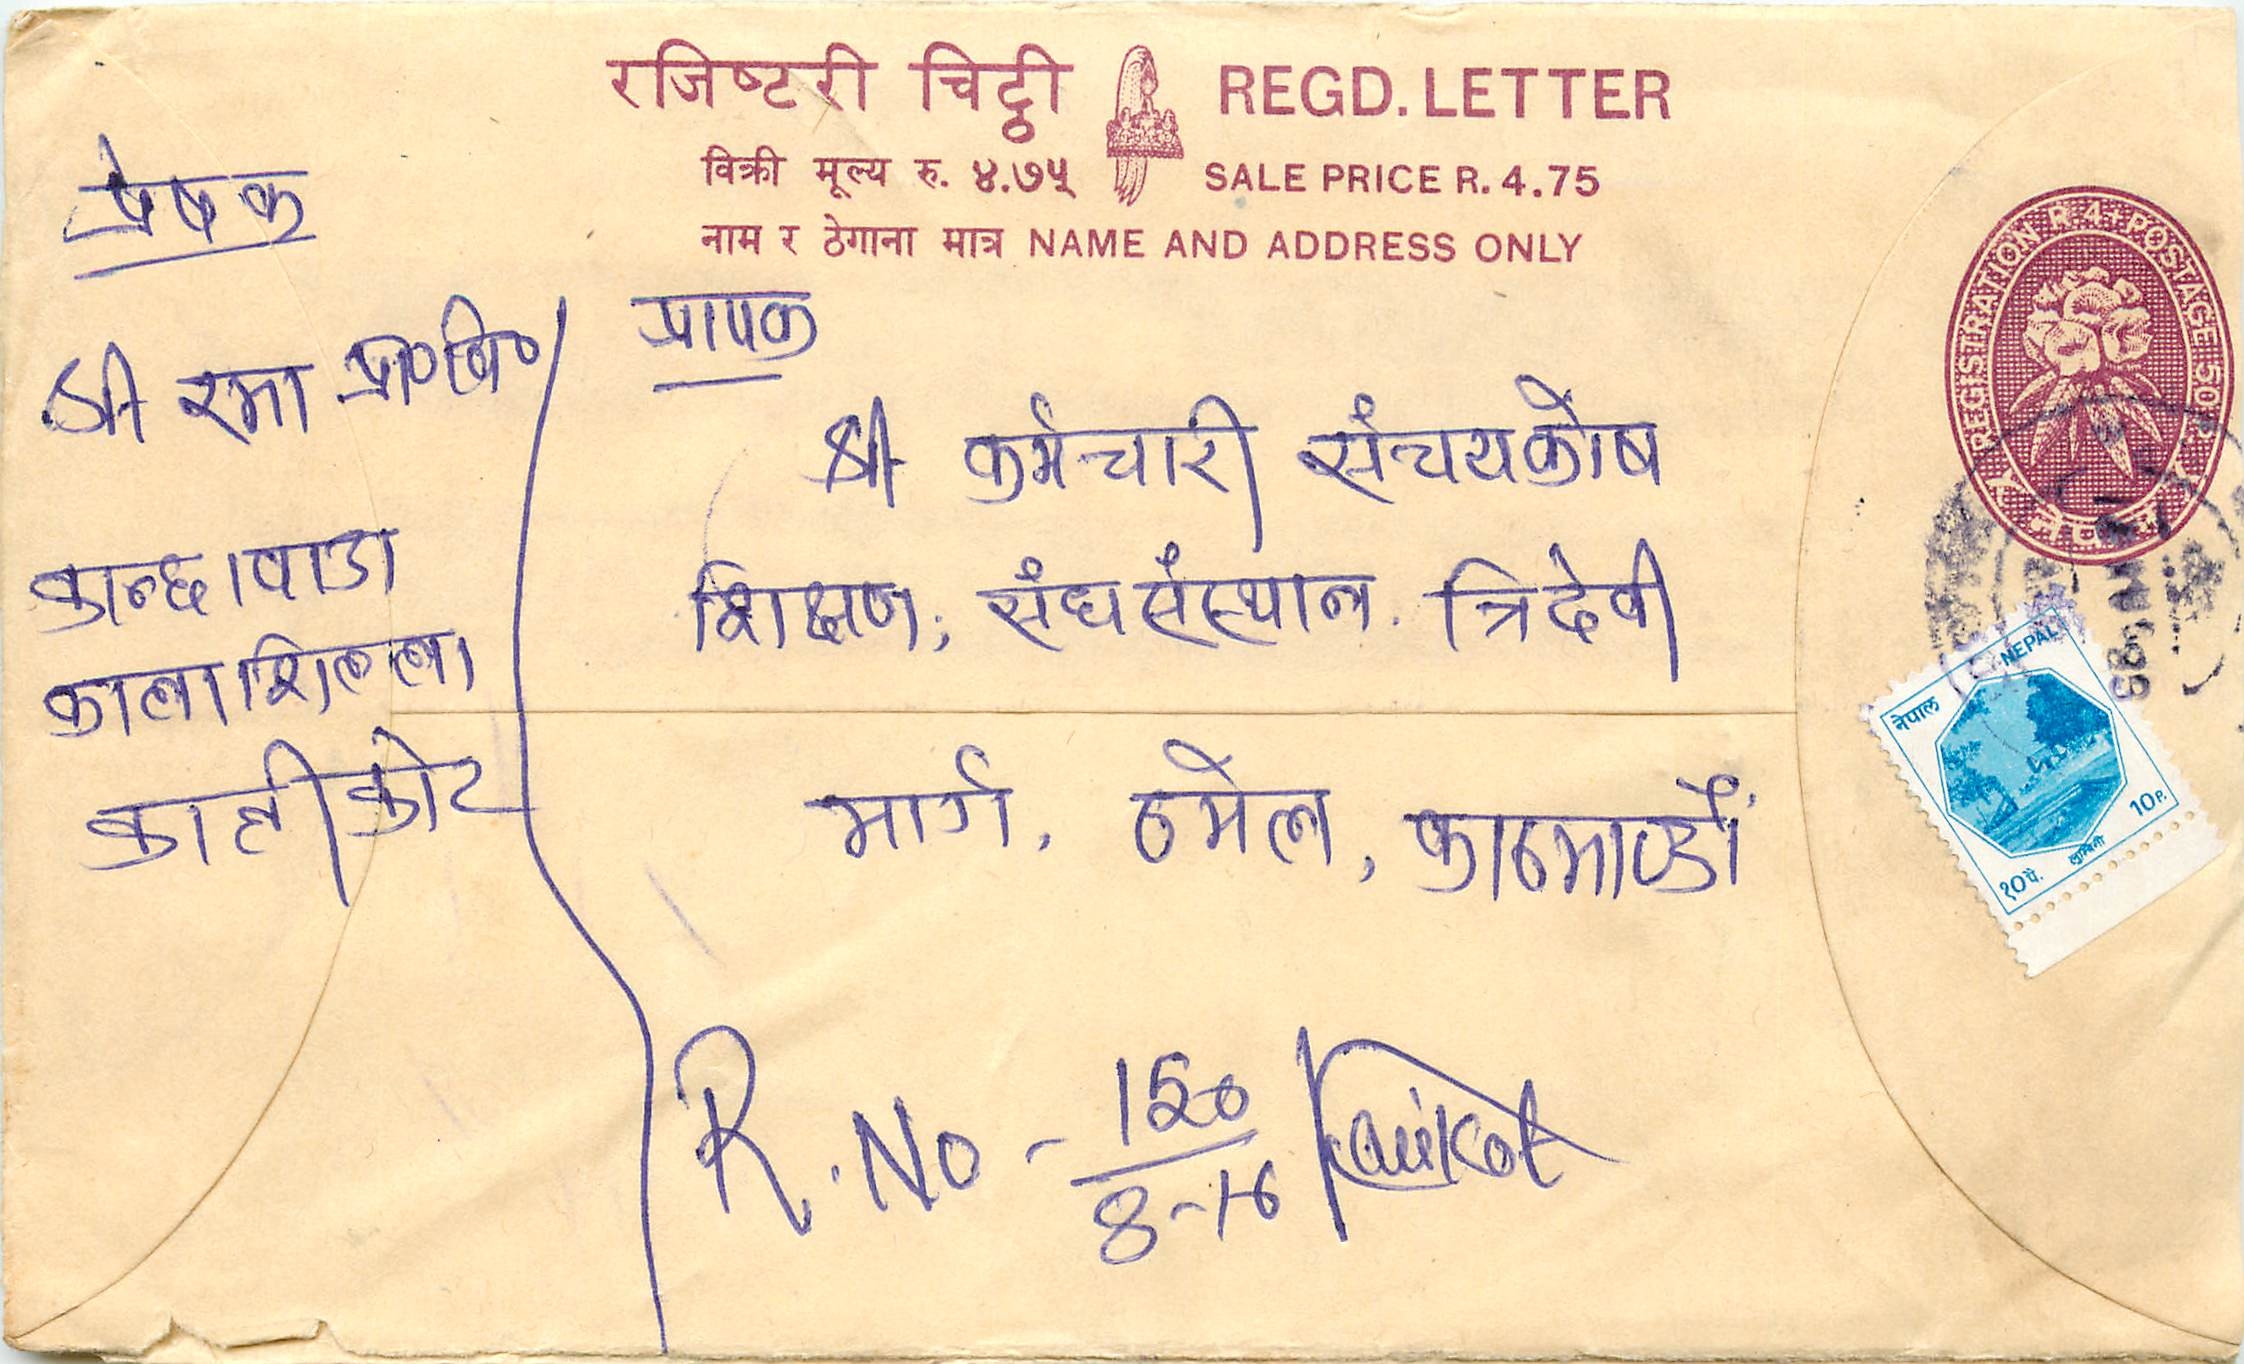 रजिष्टरी चिट्ठी REGD. LETTER
विक्री मूल्य रु. ४.७५ SALE PRICE R. 4.75
नाम र ठेगाना मात्र NAME AND ADDRESS ONLY
REGISTRATION R.4+POSTAGE 50 P.
नेपाल
प्रेषक
श्री रमा प्रा०वि०
कालाशिल्ला
कालीकोट
प्रापक
श्री कर्मचारी संचयकोष
शिक्षण, संघसंस्थान त्रिदेवी
मार्ग, ठमेल, काठमाण्डौं
नेपाल NEPAL
10 P.
लुम्बिनी
१0 पै.
R. No -
8-16